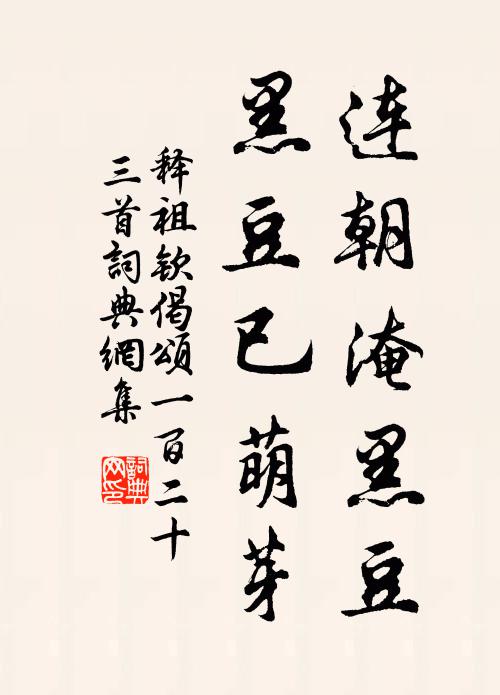 连朝淹黑豆
黑豆已萌芽
释祖钦偈頌一百二十
三首詞典網集
詞典
网印